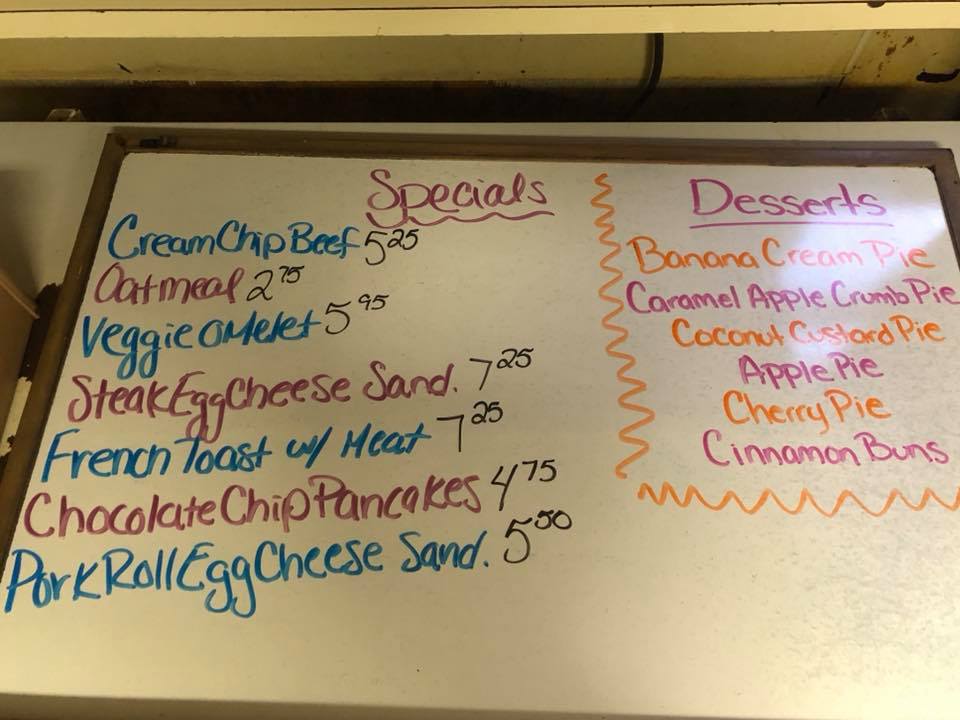 Specials
Cream Chip Beef 5 25
Oatmeal 2 75
Veggie Omelet 5 95
Steak Egg Cheese Sand. 7 25
French Toast w/ Meat 7 25
Chocolate Chip Pancakes 4 75
Pork Roll Egg Cheese Sand. 5 50
Desserts
Banana Cream Pie
Caramel Apple Crumb Pie
Coconut Custard Pie
Apple Pie
Cherry Pie
Cinnamon Buns